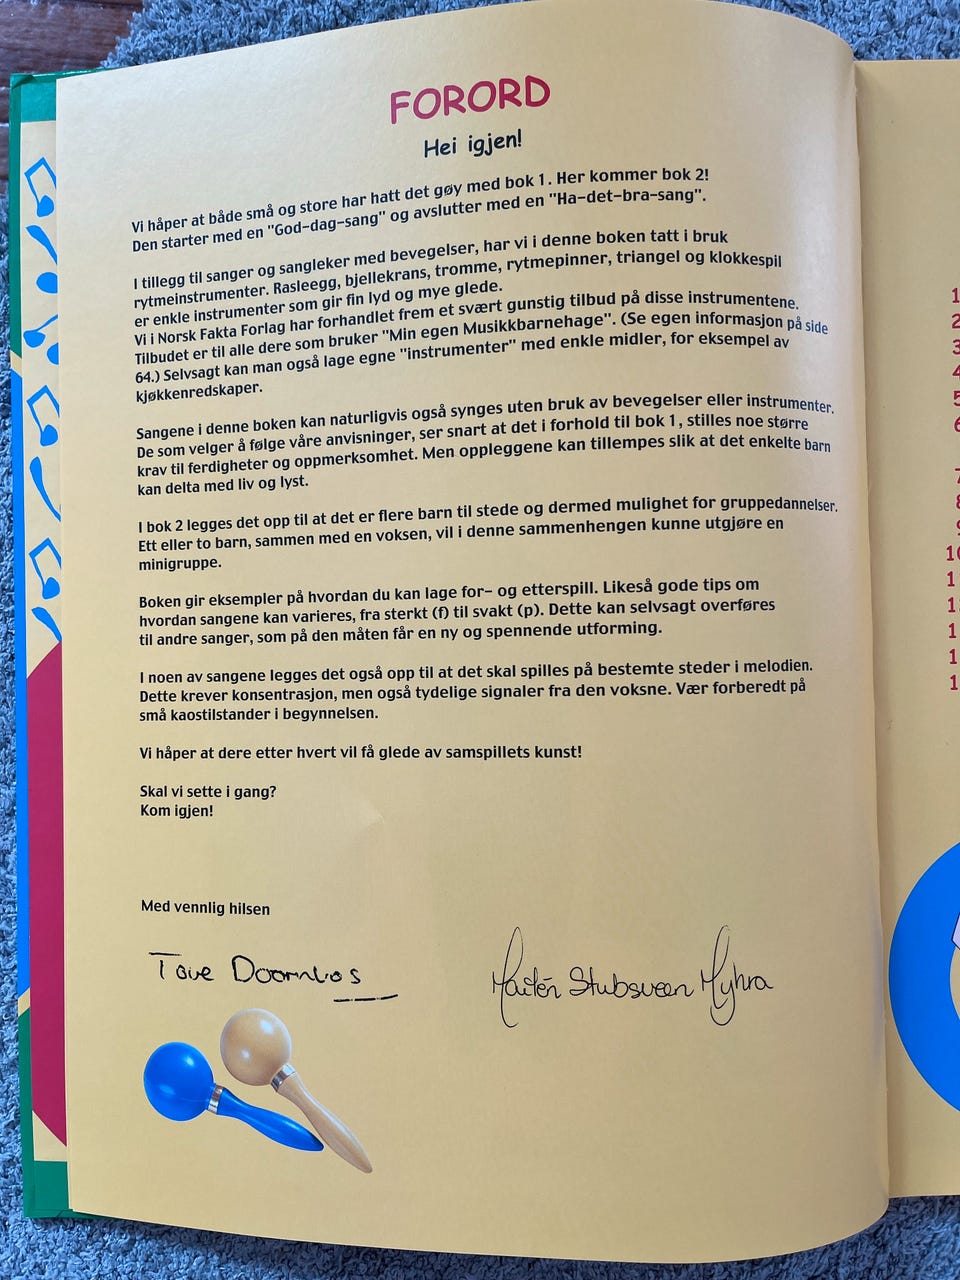 FORORD
Hei igjen!
Vi håper at både små og store har hatt det gøy med bok 1. Her kommer bok 2!
Den starter med en "God-dag-sang" og avslutter med en "Ha-det-bra-sang".
I tillegg til sanger og sangleker med bevegelser, har vi i denne boken tatt i bruk
rytmeinstrumenter. Rasleegg, bjellekrans, tromme, rytmepinner, triangel og klokkespil
er enkle instrumenter som gir fin lyd og mye glede.
Vi i Norsk Fakta Forlag har forhandlet frem et svært gunstig tilbud på disse instrumentene.
Tilbudet er til alle dere som bruker "Min egen Musikkbarnehage". (Se egen informasjon på side
64.) Selvsagt kan man også lage egne "instrumenter" med enkle midler, for eksempel av
kjøkkenredskaper.
Sangene i denne boken kan naturligvis også synges uten bruk av bevegelser eller instrumenter.
De som velger å følge våre anvisninger, ser snart at det i forhold til bok 1, stilles noe større
krav til ferdigheter og oppmerksomhet. Men oppleggene kan tillempes slik at det enkelte barn
kan delta med liv og lyst.
I bok 2 legges det opp til at det er flere barn til stede og dermed mulighet for gruppedannelser.
Ett eller to barn, sammen med en voksen, vil i denne sammenhengen kunne utgjøre en
minigruppe.
Boken gir eksempler på hvordan du kan lage for- og etterspill. Likeså gode tips om
hvordan sangene kan varieres, fra sterkt (f) til svakt (p). Dette kan selvsagt overføres
til andre sanger, som på den måten får en ny og spennende utforming.
I noen av sangene legges det også opp til at det skal spilles på bestemte steder i melodien.
Dette krever konsentrasjon, men også tydelige signaler fra den voksne. Vær forberedt på
små kaostilstander i begynnelsen.
Vi håper at dere etter hvert vil få glede av samspillets kunst!
Skal vi sette i gang?
Kom igjen!
Med vennlig hilsen
Tove Doornbos
Maitén Stubsveen Myhra